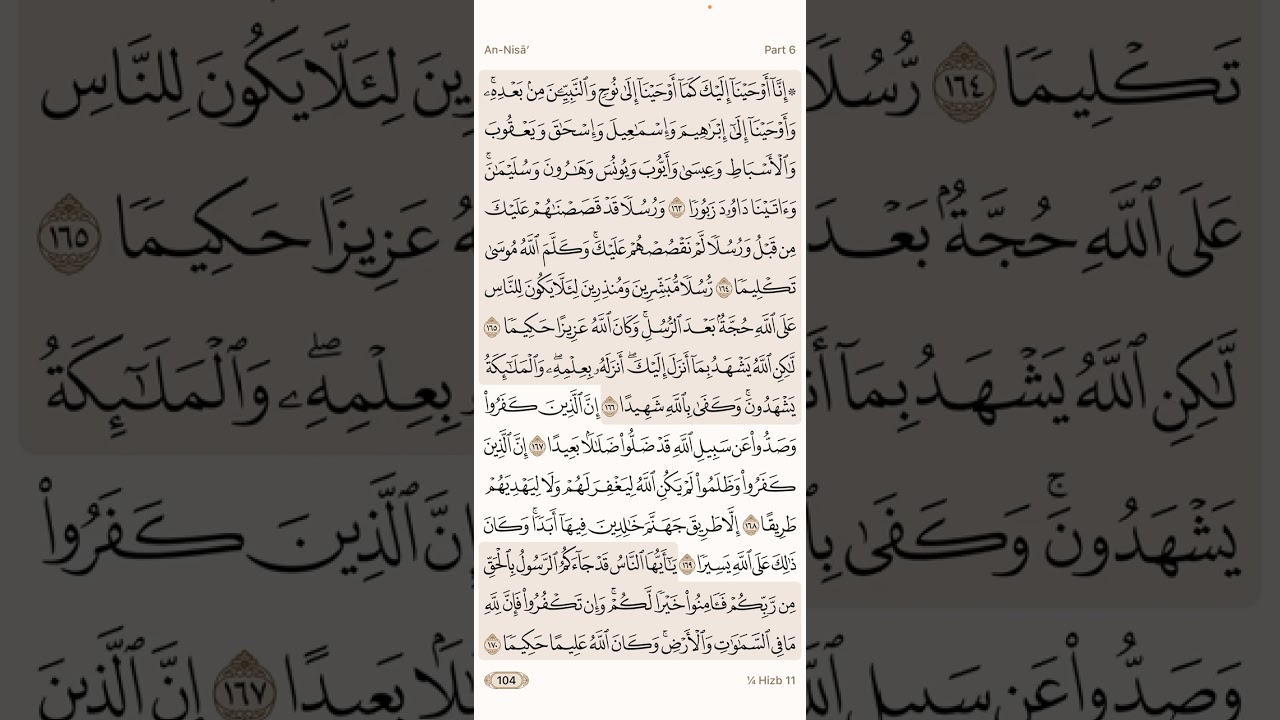 An-Nisā’
Part 6
۞ إِنَّآ أَوْحَيْنَآ إِلَيْكَ كَمَآ أَوْحَيْنَآ إِلَىٰ نُوحٍ وَٱلنَّبِيِّـۧنَ مِنۢ بَعْدِهِۦۚ
وَأَوْحَيْنَآ إِلَىٰٓ إِبْرَٰهِيمَ وَإِسْمَٰعِيلَ وَإِسْحَٰقَ وَيَعْقُوبَ
وَٱلْأَسْبَاطِ وَعِيسَىٰ وَأَيُّوبَ وَيُونُسَ وَهَٰرُونَ وَسُلَيْمَٰنَۚ
وَءَاتَيْنَا دَاوُۥدَ زَبُورًا ١٦٣ وَرُسُلًا قَدْ قَصَصْنَٰهُمْ عَلَيْكَ
مِن قَبْلُ وَرُسُلًا لَّمْ نَقْصُصْهُمْ عَلَيْكَۚ وَكَلَّمَ ٱللَّهُ مُوسَىٰ
تَكْلِيمًا ١٦٤ رُّسُلًا مُّبَشِّرِينَ وَمُنذِرِينَ لِئَلَّا يَكُونَ لِلنَّاسِ
عَلَى ٱللَّهِ حُجَّةٌۢ بَعْدَ ٱلرُّسُلِۚ وَكَانَ ٱللَّهُ عَزِيزًا حَكِيمًا ١٦٥
لَّٰكِنِ ٱللَّهُ يَشْهَدُ بِمَآ أَنزَلَ إِلَيْكَۖ أَنزَلَهُۥ بِعِلْمِهِۦۖ وَٱلْمَلَٰٓئِكَةُ
يَشْهَدُونَۚ وَكَفَىٰ بِٱللَّهِ شَهِيدًا ١٦٦ إِنَّ ٱلَّذِينَ كَفَرُوا۟
وَصَدُّوا۟ عَن سَبِيلِ ٱللَّهِ قَدْ ضَلُّوا۟ ضَلَٰلًۢا بَعِيدًا ١٦٧ إِنَّ ٱلَّذِينَ
كَفَرُوا۟ وَظَلَمُوا۟ لَمْ يَكُنِ ٱللَّهُ لِيَغْفِرَ لَهُمْ وَلَا لِيَهْدِيَهُمْ
طَرِيقًا ١٦٨ إِلَّا طَرِيقَ جَهَنَّمَ خَٰلِدِينَ فِيهَآ أَبَدًاۚ وَكَانَ
ذَٰلِكَ عَلَى ٱللَّهِ يَسِيرًا ١٦٩ يَٰٓأَيُّهَا ٱلنَّاسُ قَدْ جَآءَكُمُ ٱلرَّسُولُ بِٱلْحَقِّ
مِن رَّبِّكُمْ فَـَٔامِنُوا۟ خَيْرًا لَّكُمْۚ وَإِن تَكْفُرُوا۟ فَإِنَّ لِلَّهِ
مَا فِى ٱلسَّمَٰوَٰتِ وَٱلْأَرْضِۚ وَكَانَ ٱللَّهُ عَلِيمًا حَكِيمًا ١٧٠
104
¼ Hizb 11